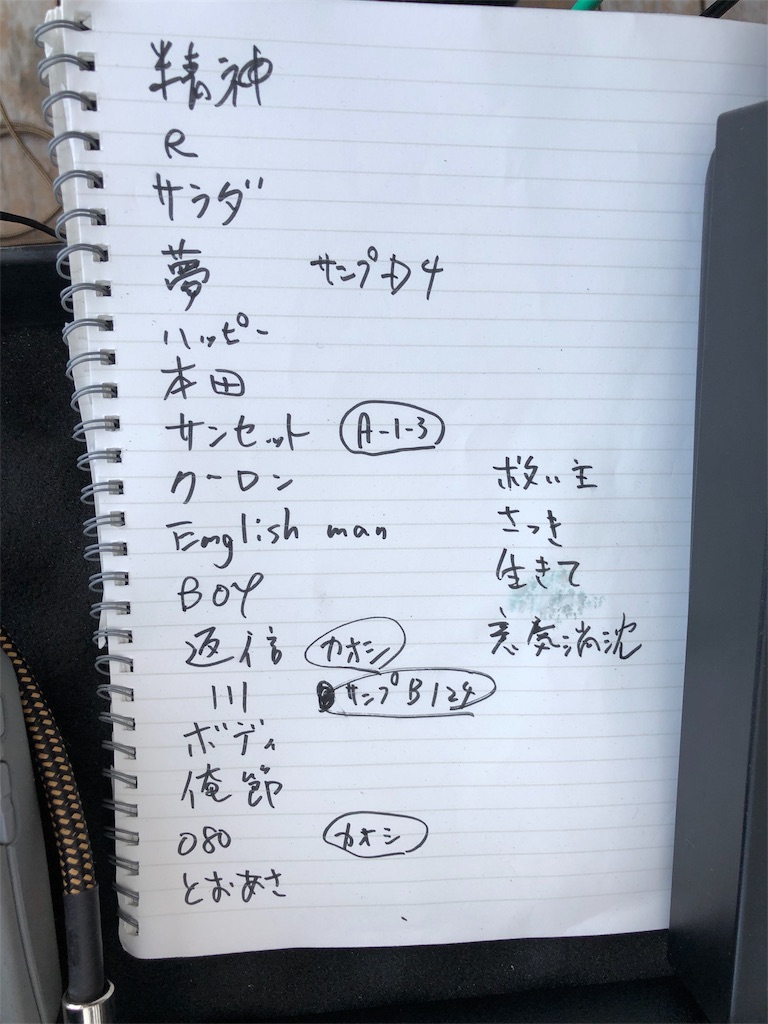 精神
R
サラダ
夢 サンプ D4
ハッピー
本田
サンセット A-1-3
クーロン 救い主
English man さつき
BOY 生きて
返信 カオシ 意気消沈
川 サンプ B124
ボディ
俺節
080 カオシ
とおあさ